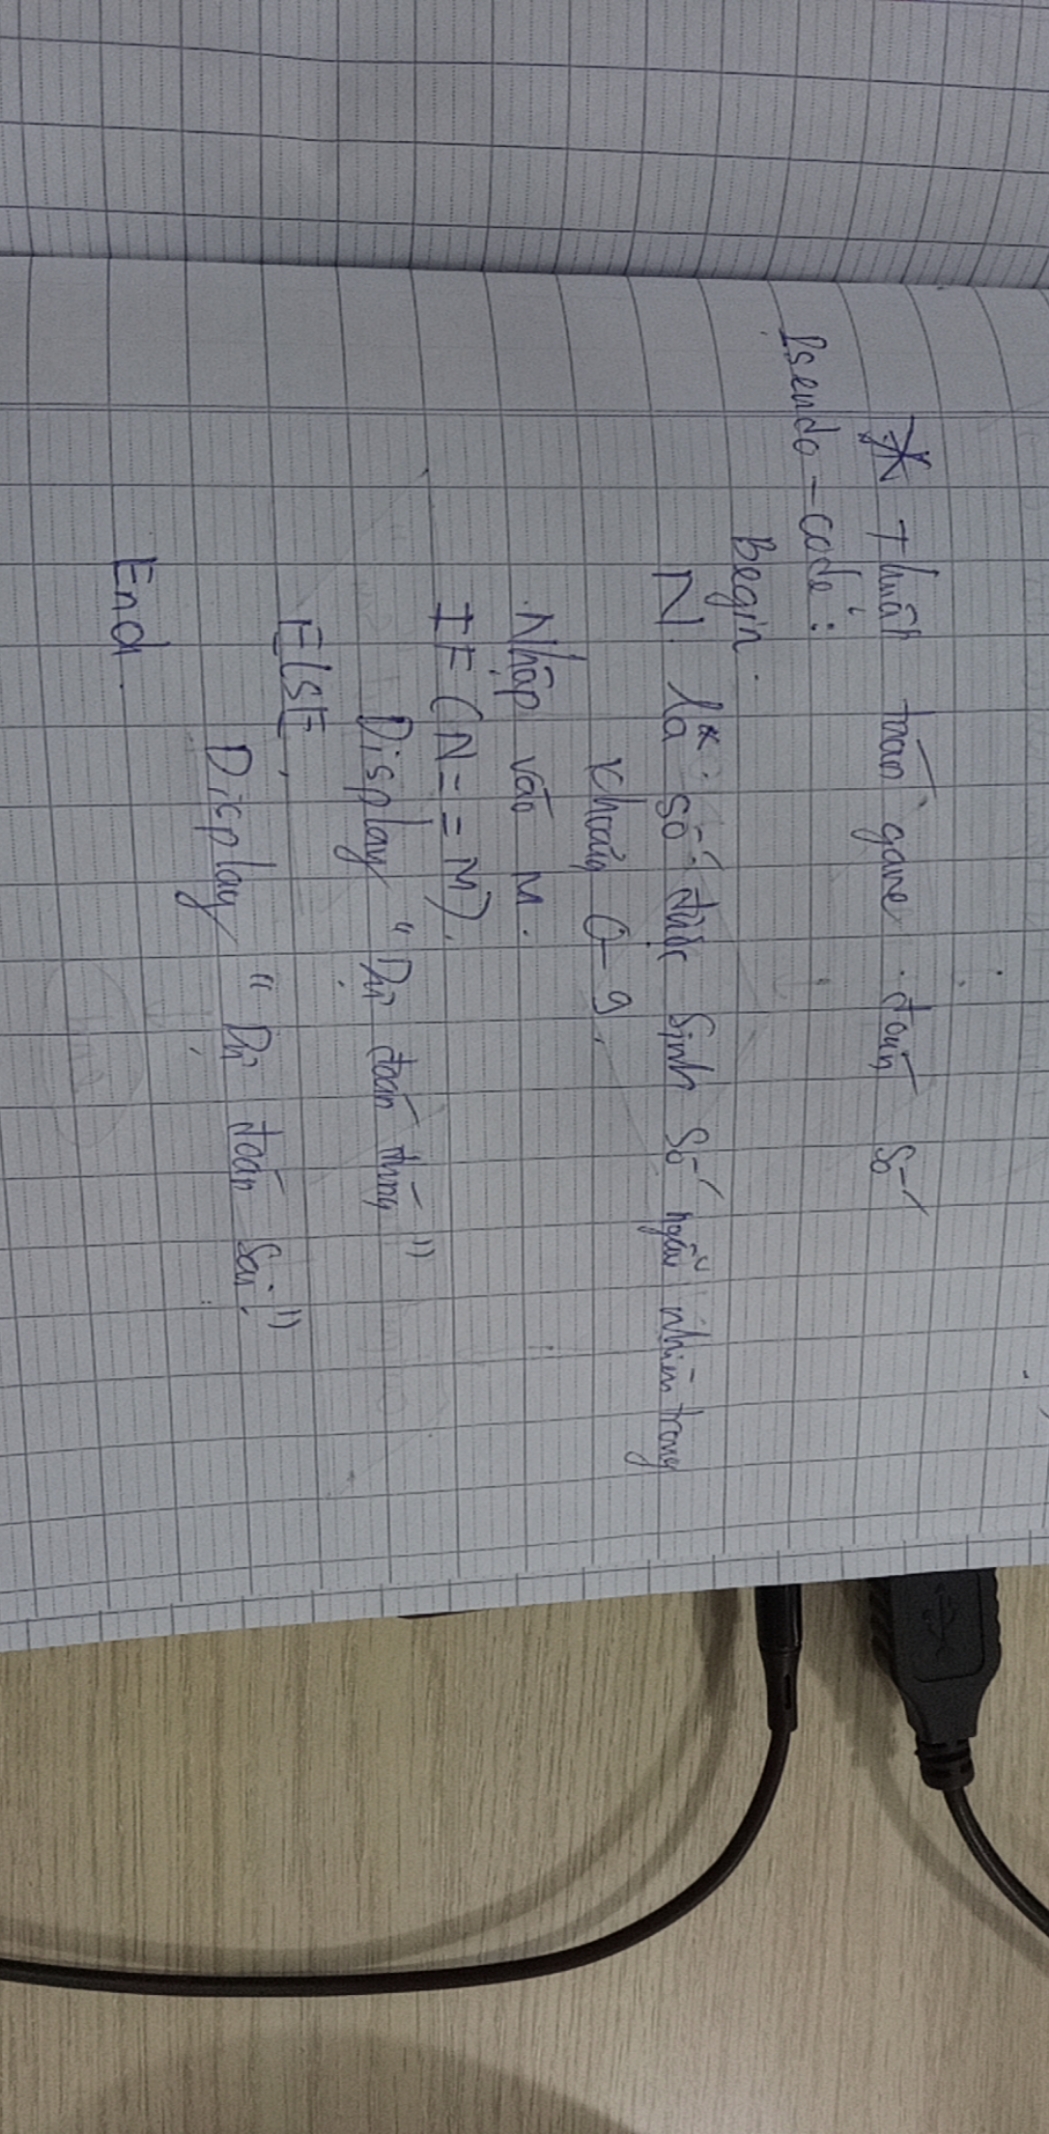 * Thuật toán game đoán số
Pseudo-code:
Begin.
N là số được sinh số ngẫu nhiên trong
khoảng 0-9.
Nhập vào M.
IF (N==M).
Display "Dự đoán đúng"
ElsE
Display "Dự đoán sai."
End.